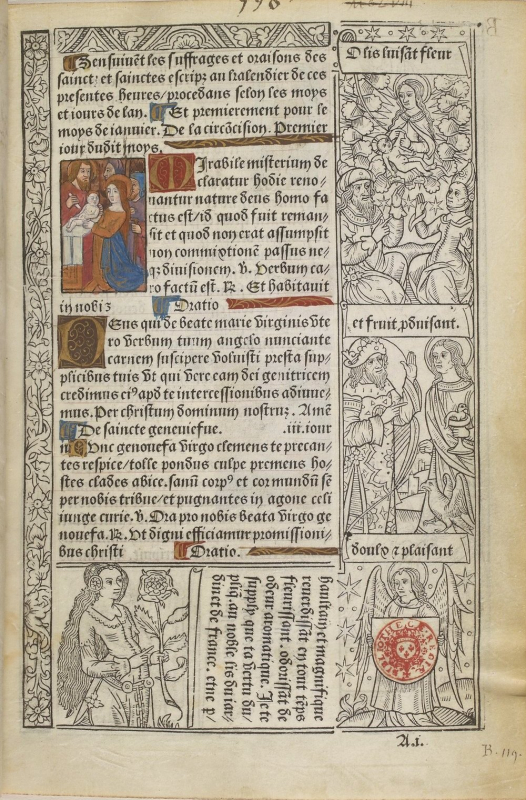 Sensuivēt les suffrages et oraisons des
sainctz et sainctes escripz au kalendier de ces
presentes heures/ procedans selon les moys
et iours de lan. Et premierement pour le
moys de ianuier. De la circōcision. Premier
iour dudit moys.
Mirabile misterium de
claratur hodie reno/
uantur nature deus homo fa
ctus est/ id quod fuit reman/
sit et quod non erat assumpsit
non commixtionē passus ne/
qz diuisionem. v. Verbum ca/
ro factū est. R. Et habitauit
in nobiz Oratio
Deus qui de beate marie virginis vte
ro verbum tuum angelo nunciante
carnem suscipere voluisti presta sup/
plicibus tuis vt qui vere eam dei genitricem
credimus eiꝰ apd te intercessionibus adiuue/
mus. Per christum dominum nostruz. Amē
De saincte geneuiefue. .iii. iour
Nunc genouefa virgo clemens te precan/
tes respice/ tolle pondus culpe premens ho/
stes clades abice. sanū corpꝰ et cor mundū se
per nobis tribue/ et pugnantes in agone celi
iunge curie. v. Ora pro nobis beata virgo ge
nouefa. R. Ut digni efficiamur promissioni/
bus christi Oratio.
O lis luisāt fleur
et fruit, pduisant.
doulx ⁊ plaisant
haultain et magnifique
reuerdissāt en tout tēps
fleurissant. odorissāt de
odeur aromatique. Je te
supply que ta vertu du/
pliq̄. au noble lis du iar/
dinet de france. et ne p/
A.i.